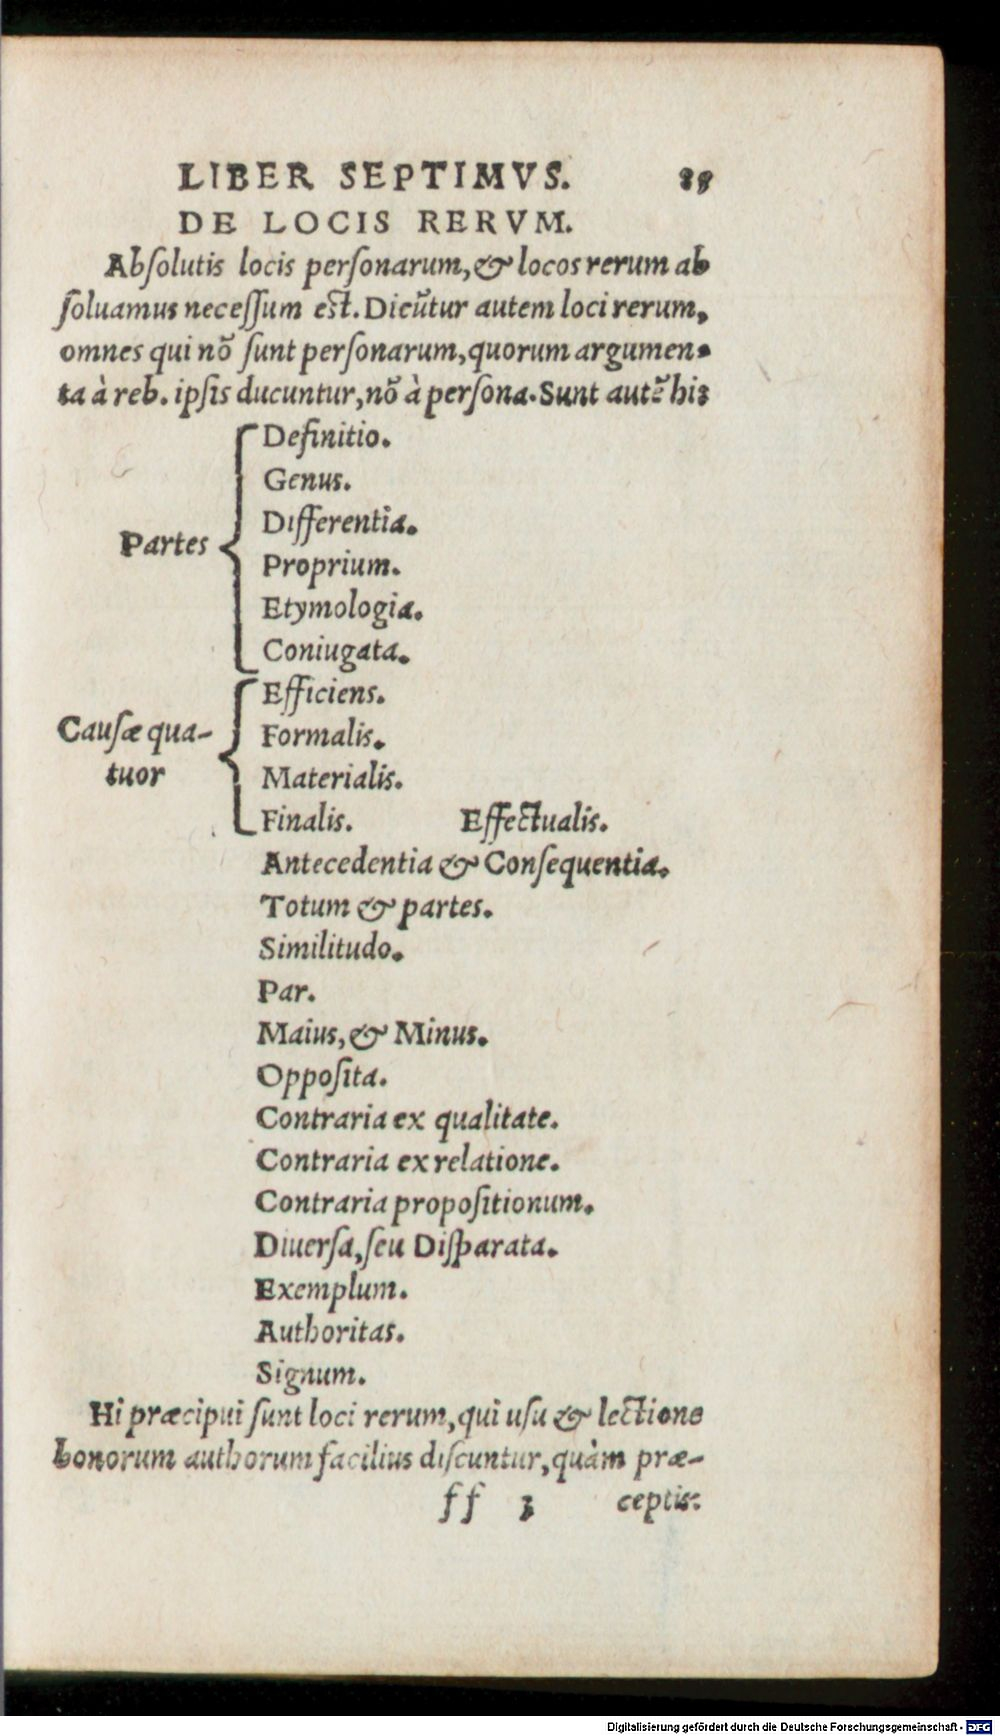 LIBER SEPTIMVS. 89
DE LOCIS RERVM.
Absolutis locis personarum, & locos rerum ab
soluamus necessum est. Dicũtur autem loci rerum,
omnes qui nõ sunt personarum, quorum argumen-
ta à reb. ipsis ducuntur, nõ à persona. Sunt autẽ hi:
Definitio.
Genus.
Differentia.
Partes
Proprium.
Etymologia.
Coniugata.
Efficiens.
Causæ qua-
Formalis.
tuor
Materialis.
Finalis. Effectualis.
Antecedentia & Consequentia.
Totum & partes.
Similitudo.
Par.
Maius, & Minus.
Opposita.
Contraria ex qualitate.
Contraria ex relatione.
Contraria propositionum.
Diuersa, seu Disparata.
Exemplum.
Authoritas.
Signum.
Hi præcipui sunt loci rerum, qui usu & lectione
bonorum authorum facilius discuntur, quàm præ-
ff 3 ceptis:
Digitalisierung gefördert durch die Deutsche Forschungsgemeinschaft - DFG